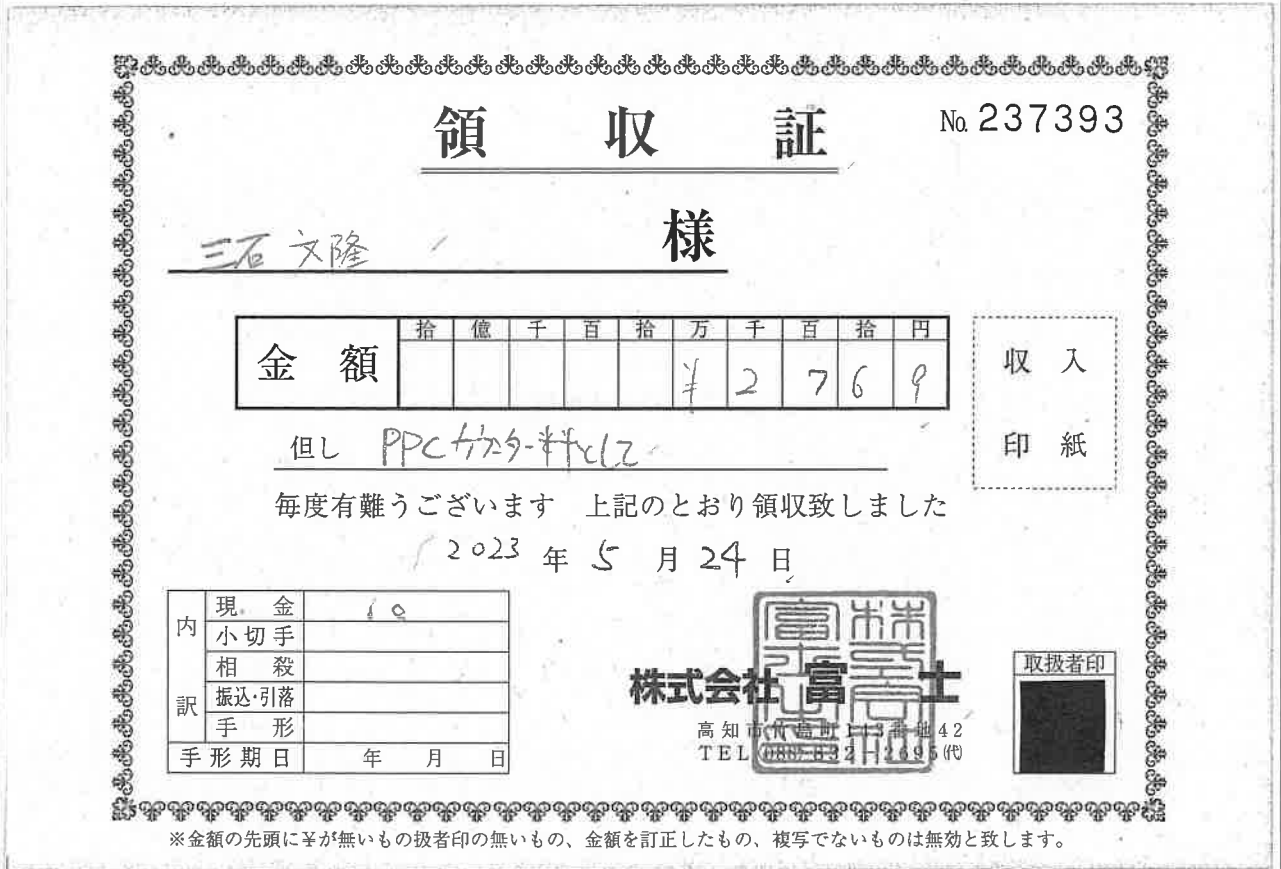 領収証
No. 237393
三石 文隆 様
金額
拾 億 千 百 拾 万 千 百 拾 円
¥ 2 7 6 9
収入
印紙
但し PPCカウンター料として
毎度有難うございます 上記のとおり領収致しました
2023年5月24日
内訳
現金
小切手
相殺
振込・引落
手形
手形期日 年 月 日
株式会社 富士
高知市竹島町113番地42
TEL 088-832-2695(代)
取扱者印
※金額の先頭に¥が無いもの扱者印の無いもの、金額を訂正したもの、複写でないものは無効と致します。